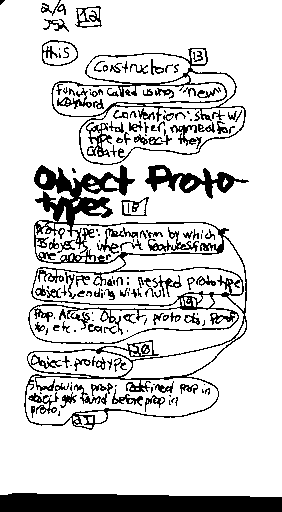 2/9 12
JS2
this
Constructors 13
function called using "new"
keyword
convention: start w/
capital letter, named for
type of object they
create
Object Proto-
types 18
Prototype: mechanism by which
JS objects inherit features from
one another
Prototype Chain: nested prototype
objects, ending with null
19
Prop. Access: Object, proto obj, proto
to, etc. search.
20
Object.prototype
Shadowing prop: redefined prop in
object gets found before prop in
proto.
21